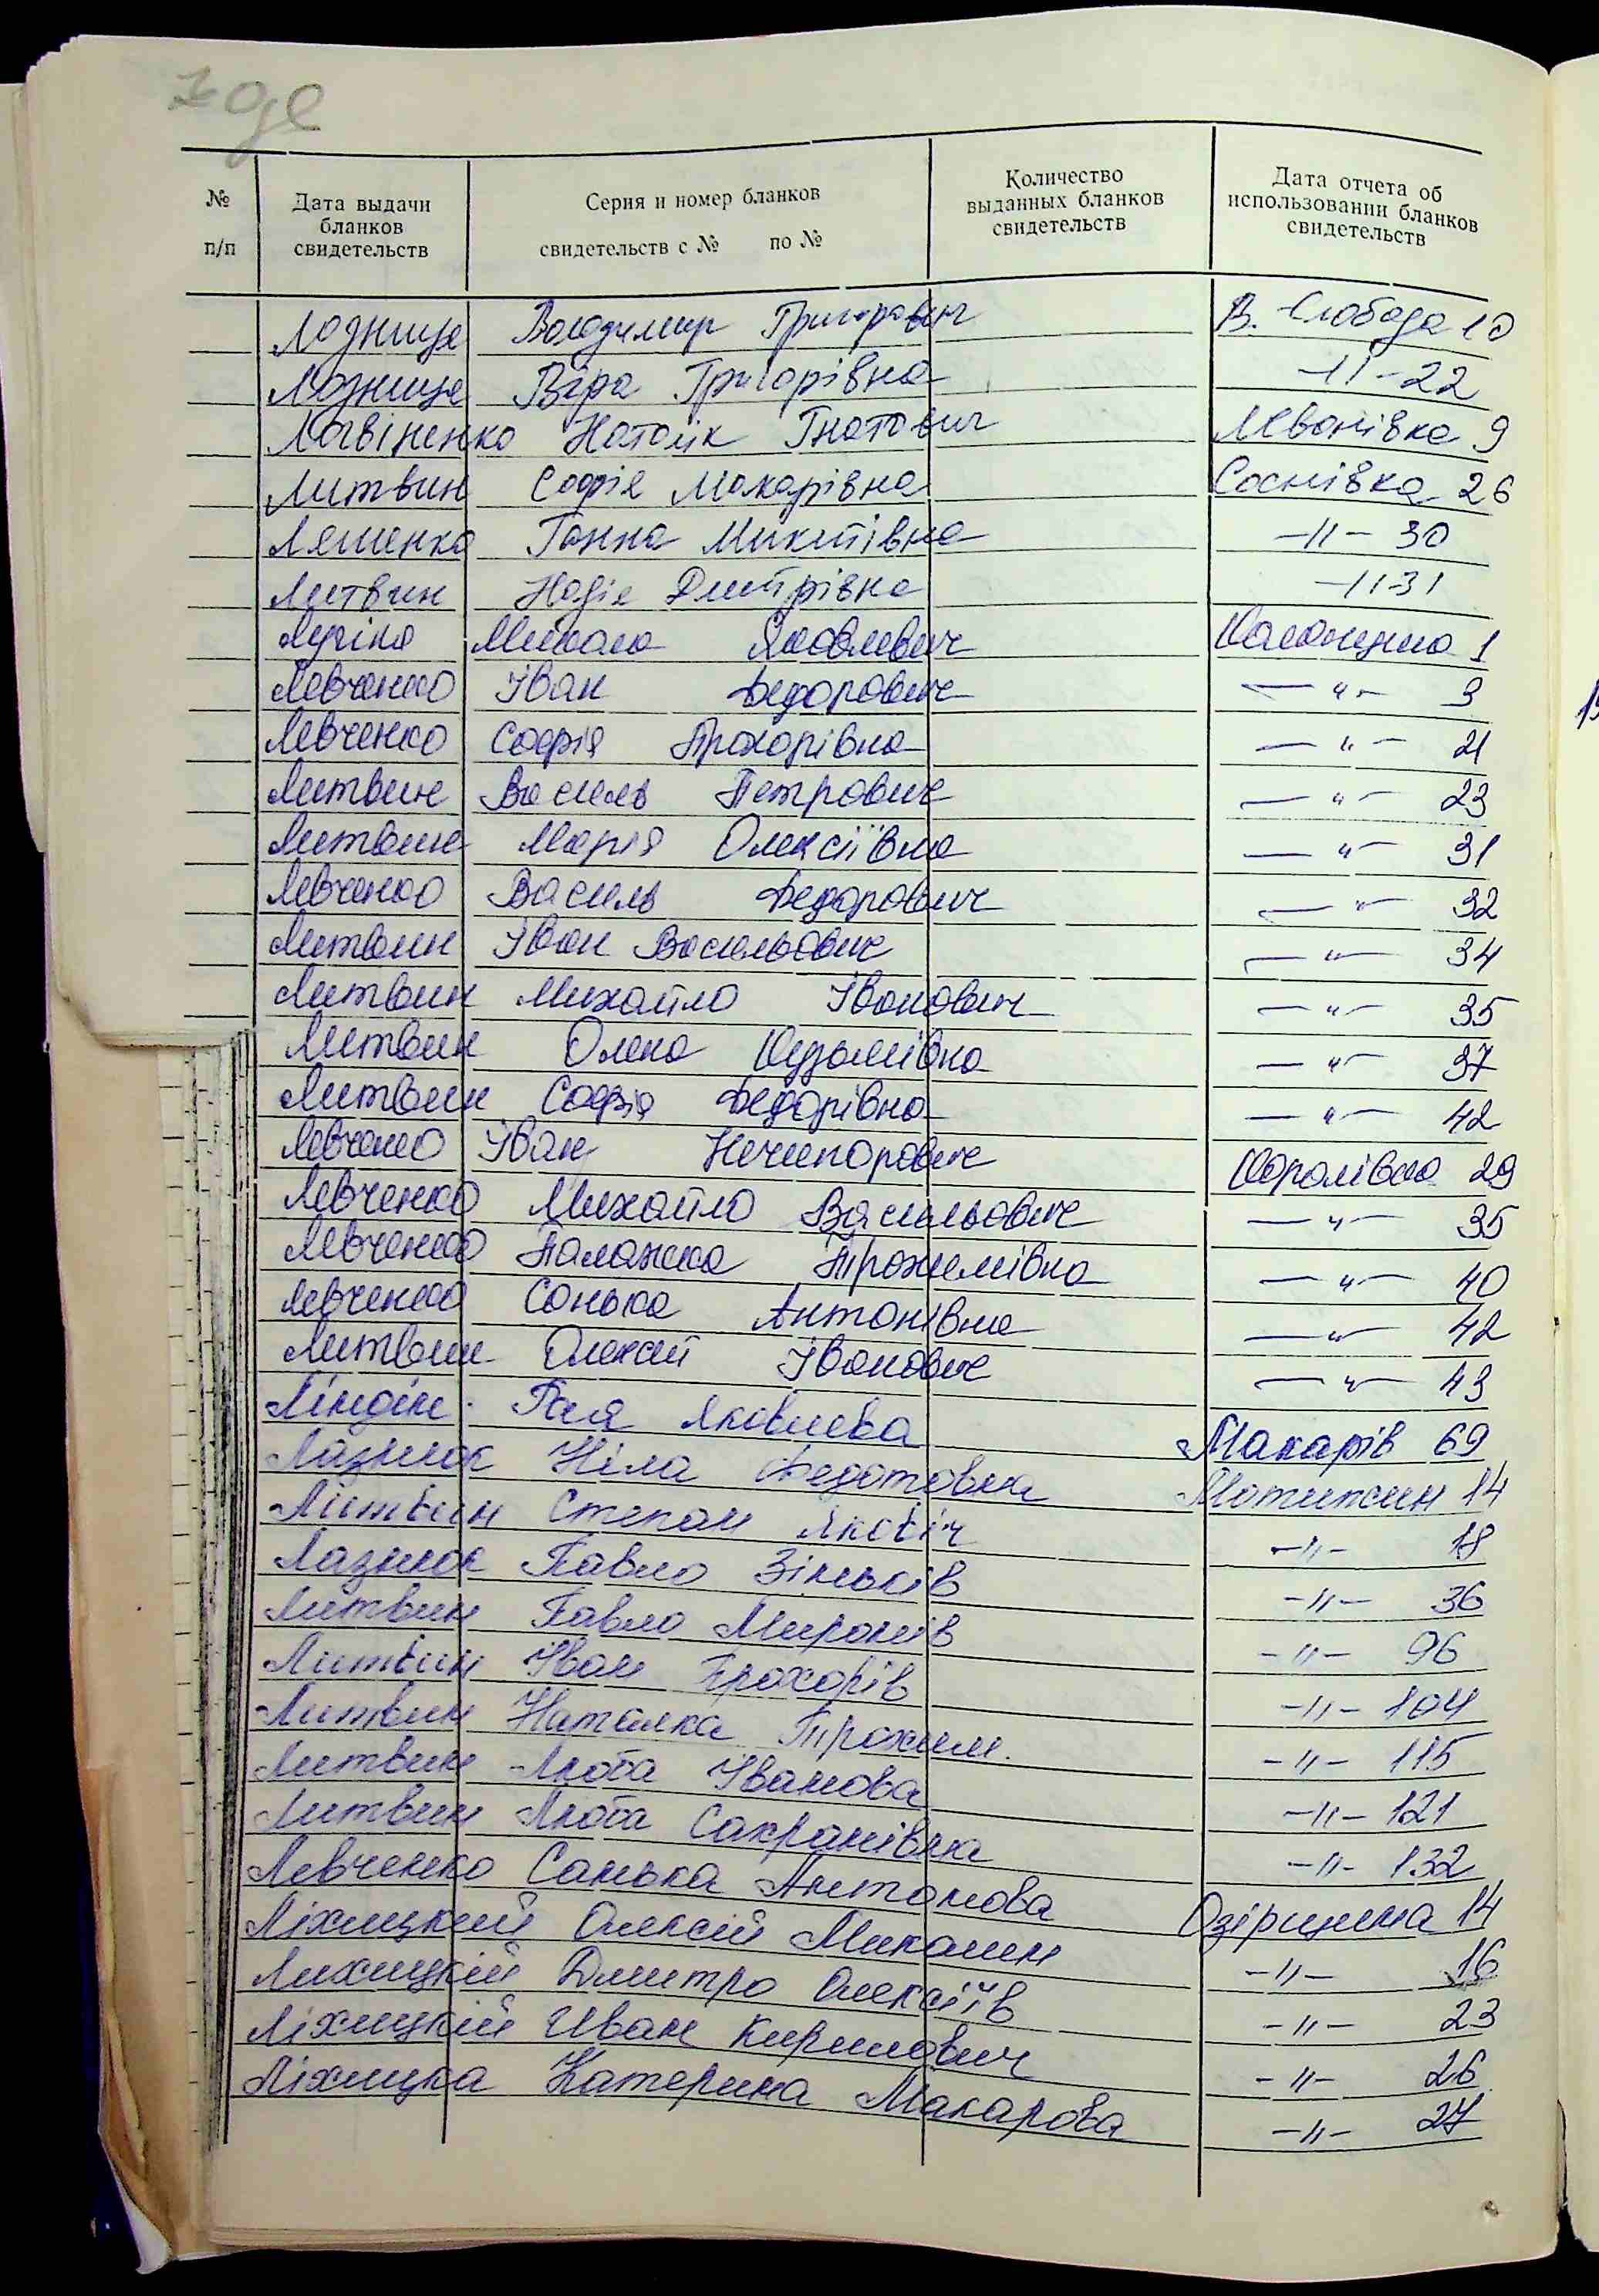 № п/п
Дата выдачи бланков свидетельств
Серия и номер бланков свидетельств с № по №
Количество выданных бланков свидетельств
Дата отчета об использовании бланков свидетельств
Лознице Володимир Григорович В. Слобода 10
Лознице Віра Григорівна -11- 22
Логвіненко Натолік Гнатович 9
Литвин Софія Макарівна Соснівка 26
Ляшенко Ганна Микитівна -11- 30
Литвин Надія Дмитрівна -11- 31
Микола Яковлевич Колонщина 1
Левченко Іван Федорович — " — 3
Левченко Софія Прохорівна — " — 21
Литвин Василь Петрович — " — 23
Литвин Марія Олексіївна — " — 31
Левченко Василь Федорович — " — 32
Литвин Іван Васильович — " — 34
Литвин Михайло Іванович — " — 35
Литвин Олена Кузьмівна — " — 37
Литвин Софія Федорівна — " — 42
Левченко Іван Ничипорович Королівка 29
Левченко Михайло Васильович — " — 35
Левченко Палажка Трохимівна — " — 40
Левченко Сонька Антонівна — " — 42
Литвин Олексій Іванович — " — 43
Ліндін Рая Яковлева Макарів 69
Лазнюк Ніла Федотовна Мотижин 14
Литвин Степан Якович -11- 18
Лазнюк Павло Зіньків -11- 36
Литвин Павло Миронів -11- 96
Литвин Іван Прохорів -11- 104
Литвин Наталка Трохим. -11- 115
Литвин Люба Іванова -11- 121
Литвин Люба Сакранівна -11- 132
Левченко Санька Антонова Озірщина 14
Ліхицкий Олексій Миколин -11- 16
Лихицкій Дмитро Олексіїв -11- 23
Ліхицкій Иван Кирилович -11- 26
Ліхицка Катерина Макарова -11- 27